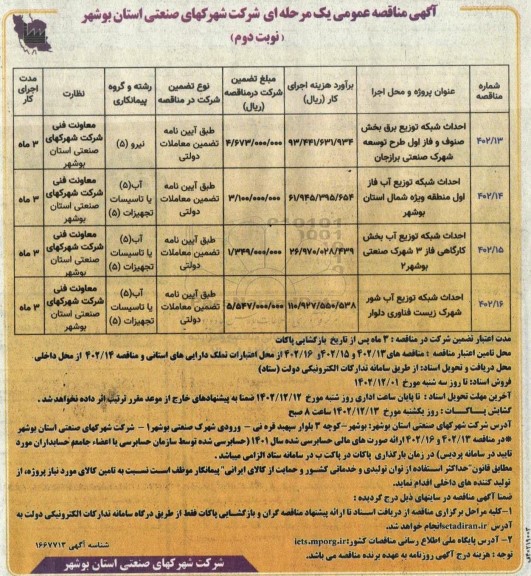 آگهی مناقصه عمومی یک مرحله ای شرکت شهرکهای صنعتی استان بوشهر
(نوبت دوم)
شماره مناقصه | عنوان پروژه و محل اجرا | برآورد هزینه اجرای کار (ریال) | مبلغ تضمین شرکت درمناقصه (ریال) | نوع تضمین شرکت در مناقصه | رشته و گروه پیمانکاری | نظارت | مدت اجرای کار
۴۰۲/۱۳ | احداث شبکه توزیع برق بخش صنوف و فاز اول طرح توسعه شهرک صنعتی برازجان | ۹۳/۴۴۱/۶۳۱/۹۳۴ | ۴/۶۷۳/۰۰۰/۰۰۰ | طبق آیین نامه تضمین معاملات دولتی | نیرو (۵) | معاونت فنی شرکت شهرکهای صنعتی استان بوشهر | ۳ ماه
۴۰۲/۱۴ | احداث شبکه توزیع آب فاز اول منطقه ویژه شمال استان بوشهر | ۶۱/۹۴۵/۳۹۵/۶۵۴ | ۳/۱۰۰/۰۰۰/۰۰۰ | طبق آیین نامه تضمین معاملات دولتی | آب(۵) یا تاسیسات تجهیزات (۵) | معاونت فنی شرکت شهرکهای صنعتی استان بوشهر | ۳ ماه
۴۰۲/۱۵ | احداث شبکه توزیع آب بخش کارگاهی فاز ۳ شهرک صنعتی بوشهر۲ | ۲۶/۹۷۰/۰۲۸/۴۳۹ | ۱/۳۴۹/۰۰۰/۰۰۰ | طبق آیین نامه تضمین معاملات دولتی | آب(۵) یا تاسیسات تجهیزات (۵) | معاونت فنی شرکت شهرکهای صنعتی استان بوشهر | ۳ ماه
۴۰۲/۱۶ | احداث شبکه توزیع آب شور شهرک زیست فناوری دلوار | ۱۱۰/۹۲۷/۵۵۰/۵۳۸ | ۵/۵۴۷/۰۰۰/۰۰۰ | طبق آیین نامه تضمین معاملات دولتی | آب(۵) یا تاسیسات تجهیزات (۵) | معاونت فنی شرکت شهرکهای صنعتی استان بوشهر | ۳ ماه
مدت اعتبار تضمین شرکت در مناقصه : ۳ ماه پس از تاریخ بازگشایی پاکات
محل تامین اعتبار مناقصه : مناقصه های ۴۰۲/۱۳ و ۴۰۲/۱۵ و ۴۰۲/۱۶ از محل اعتبارات تملک دارایی های استانی و مناقصه ۴۰۲/۱۴ از محل داخلی.
محل دریافت و تحویل اسناد: از طریق سامانه تدارکات الکترونیکی دولت (ستاد)
فروش اسناد: تا روز سه شنبه مورخ ۱۴۰۲/۱۲/۰۱
آخرین مهلت تحویل اسناد : تا پایان ساعت اداری روز شنبه مورخ ۱۴۰۲/۱۲/۱۲ ضمنا به پیشنهادهای خارج از موعد مقرر ترتیب اثر داده نخواهد شد.
گشایش پاکات : روز یکشنبه مورخ ۱۴۰۲/۱۲/۱۳ ساعت ۸ صبح
آدرس شرکت شهرکهای صنعتی استان بوشهر: بوشهر-کوچه ۳ بلوار سپهبد قره نی - ورودی شهرک صنعتی بوشهر۱ - شرکت شهرکهای صنعتی استان بوشهر
*در مناقصه ۴۰۲/۱۳ و ۴۰۲/۱۶ ارائه صورت های مالی حسابرسی شده سال ۱۴۰۱ (حسابرسی شده توسط سازمان حسابرسی یا اعضاء جامعه حسابداران مورد
تایید در سامانه پردیس) در زمان بارگذاری پاکات در پاکت ب در سامانه ستاد الزامی میباشد.
مطابق قانون"حداکثر استفاده از توان تولیدی و خدماتی کشور و حمایت از کالای ایرانی" پیمانکار موظف است نسبت به تامین کالای مورد نیاز پروژه، از
تولید کننده های داخلی اقدام نماید.
ضمنا آگهی مناقصه در سایتهای ذیل درج گردیده :
۱-کلیه مراحل برگزاری مناقصه از دریافت اسناد تا ارائه پیشنهاد مناقصه گران و بازگشایی پاکات فقط از طریق درگاه سامانه تدارکات الکترونیکی دولت به
آدرس setadiran.ir انجام خواهد شد.
۲- آدرس پایگاه ملی اطلاع رسانی مناقصات کشور iets.mporg.ir
توجه : هزینه درج آگهی روزنامه به عهده برنده مناقصه می باشد.
شناسه آگهی ۱۶۶۷۷۱۳
شرکت شهرکهای صنعتی استان بوشهر